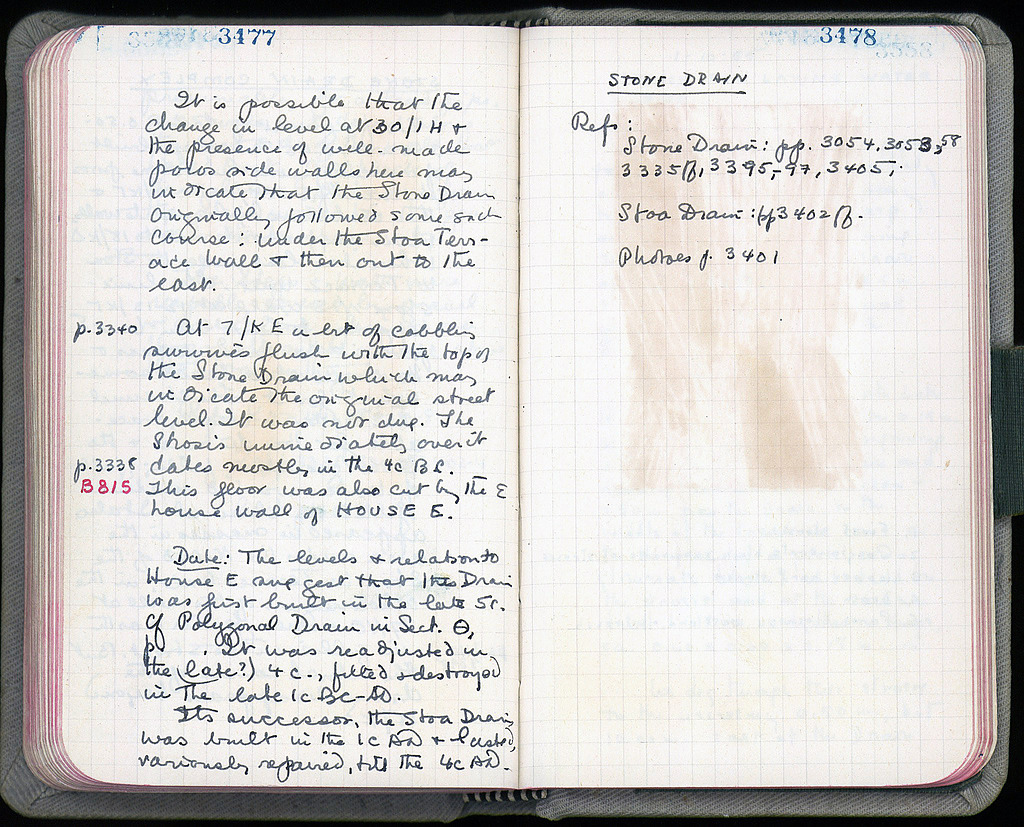 3477
It is possible that the
change in level at 30/1H +
the presence of well-made
poros side walls here may
indicate that the Stone Drain
originally followed some such
course: under the Stoa Terr-
ace wall + then out to the
east.
p.3340 At 7/KE a bit of cobbling
survives flush with the top of
the Stone Drain which may
indicate the original street
level. It was not dug. The
Strosis immediately over it
p.3338 dates mostly in the 4c BC.
B815 This floor was also cut by the E
house wall of HOUSE E.
Date: The levels + relation to
House E suggest that this Drain
was first built in the late 5c.
Cf Polygonal Drain in Sect. Θ,
p . It was readjusted in
the (late?) 4c., filled + destroyed
in the late 1c BC-AD.
Its successor, the Stoa Drain,
was built in the 1c AD + lasted,
variously repaired, till the 4c AD.
3478
STONE DRAIN
Refs:
Stone Drain: pp. 3054, 58
3335ff, 3395,-97, 3405,
Stoa Drain: pp 3402ff.
Photoes p. 3401